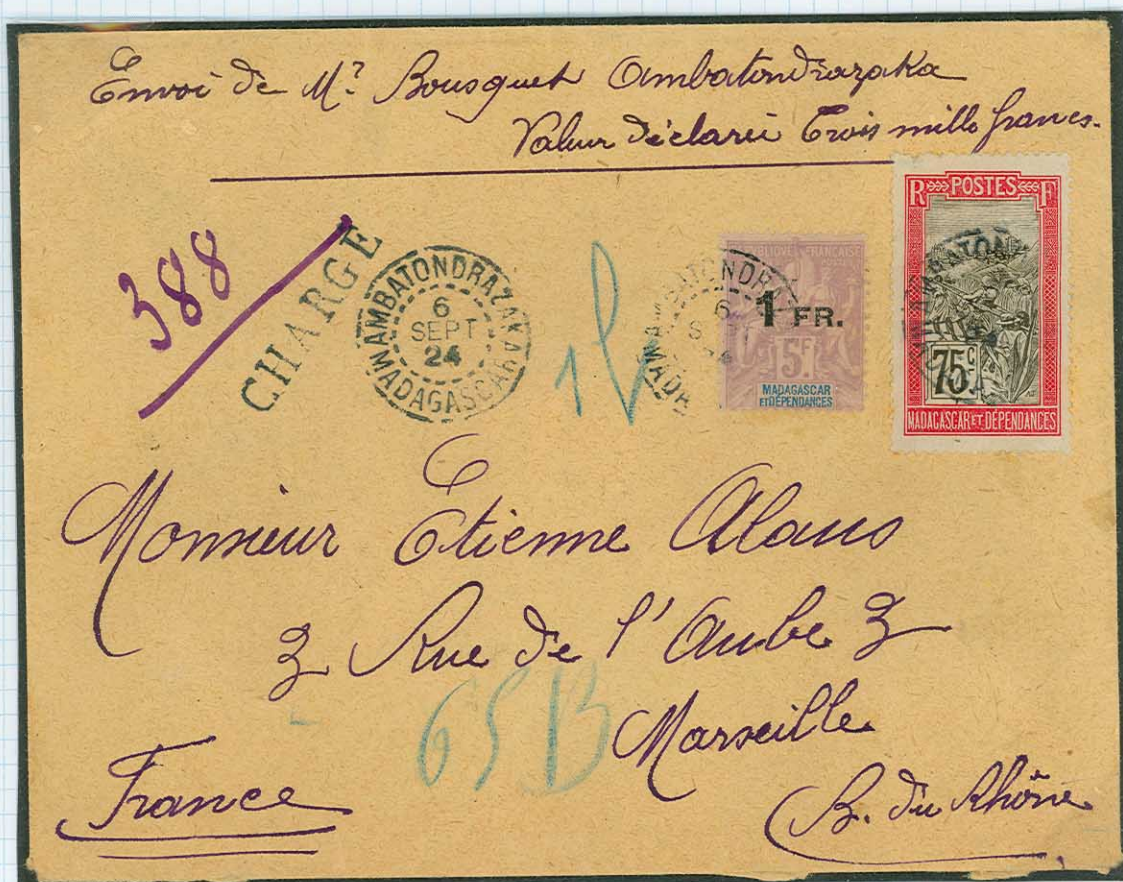 Envoi de Mr Bousquet Ambatondrazaka
Valeur déclarée Trois mille francs.
388
CHARGE
AMBATONDRAZAKA
6
SEPT
24
MADAGASCAR
1
AMBATONDRA
6
S
MADA
RÉPUBLIQUE FRANÇAISE
1 FR.
5F
MADAGASCAR
ET DÉPENDANCES
R POSTES F
AMBATON
75 c
MADAGASCAR ET DÉPENDANCES
Monsieur Etienne Alaus
3 Rue de l'Aube 3
65B
Marseille
France
B. du Rhône